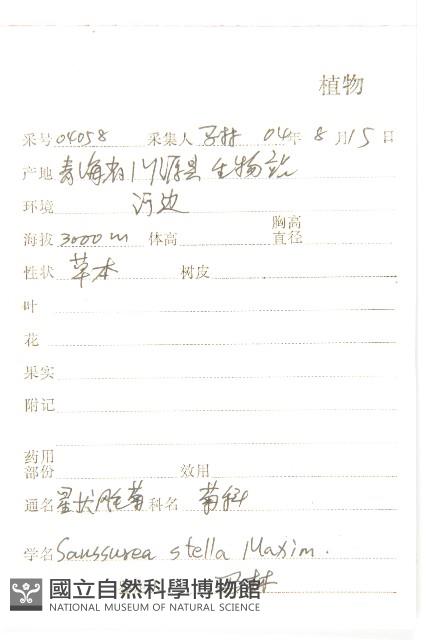 植物
采号 04058 采集人 马林 04年 8月15日
产地 青海省门源县生物站
环境 河边
海拔 3000m 体高 胸高直径
性状 草本 树皮
叶
花
果实
附记
药用部份 效用
通名 星状风毛菊 科名 菊科
学名 Saussurea stella Maxim.
國立自然科學博物館
NATIONAL MUSEUM OF NATURAL SCIENCE